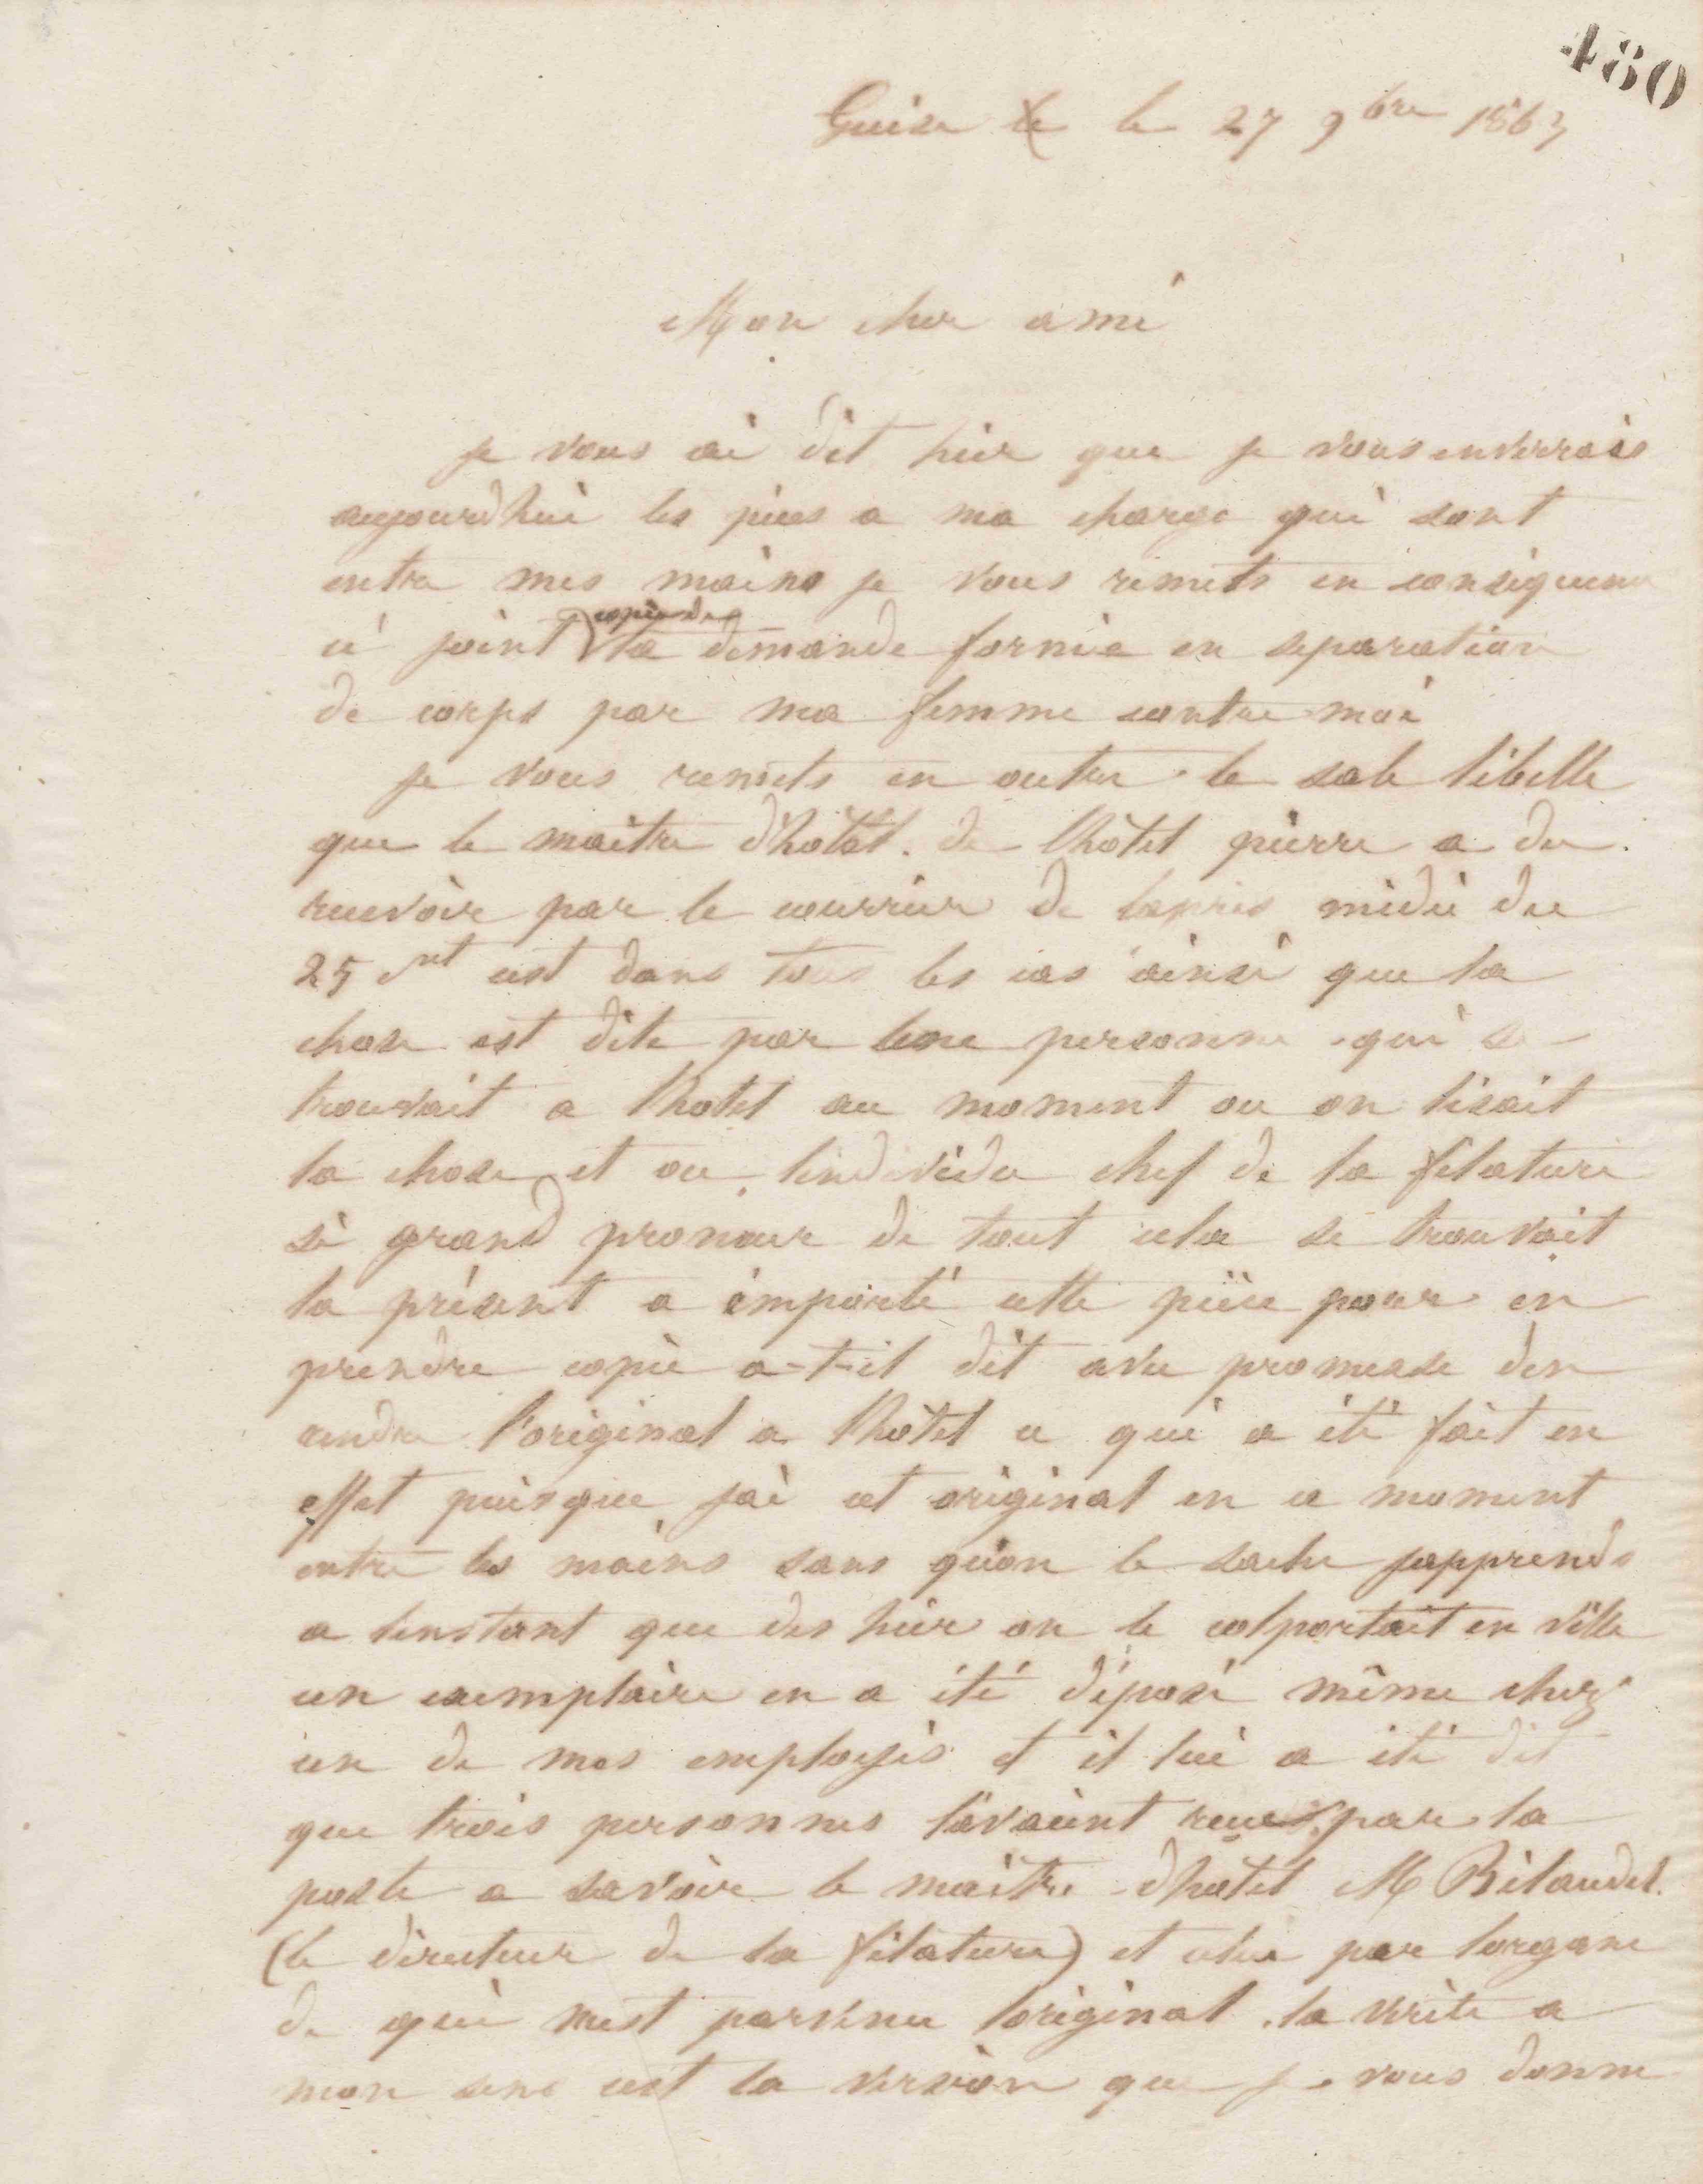 480
Guise le le 27 9bre 1863
Mon cher ami
je vous ai dit hier que je vous enverrais
aujourdhui les pieces a ma charge qui sont
entre mes mains je vous remets en consequence
ci joint copie de la demande formée en separation
de corps par ma femme contre moi
je vous remets en outre le sale libelle
que le maitre d'hotel de lhôtel pierre a du
recevoir par le courrier de lapres midi du
25 ct cest dans tous les cas ainsi que la
chose est dite par une personne qui se
trouvait a lhotel au moment ou on lisait
la chose et ou lindividu chef de la filature
si grand proneur de tout cela se trouvait
la présent a emporté cette pièce pour en
prendre copie a-t-il dit avec promesse den
rendre l'original a lhôtel ce qui a été fait en
effet puisque jai cet original en ce moment
entre les mains sans qu'on le sache japprends
a linstant que des hier on le colportait en ville
un exemplaire en a été déposé même chez
un de mes employés et il lui a été dit
que trois personnes l'avaient recu par la
poste a savoir le maitre dhôtel M Bilaudel
(le directeur de la filature) et celui par lorgane
de qui mest parvenu loriginal. la vérite a
mon sens cest la version que je vous donne